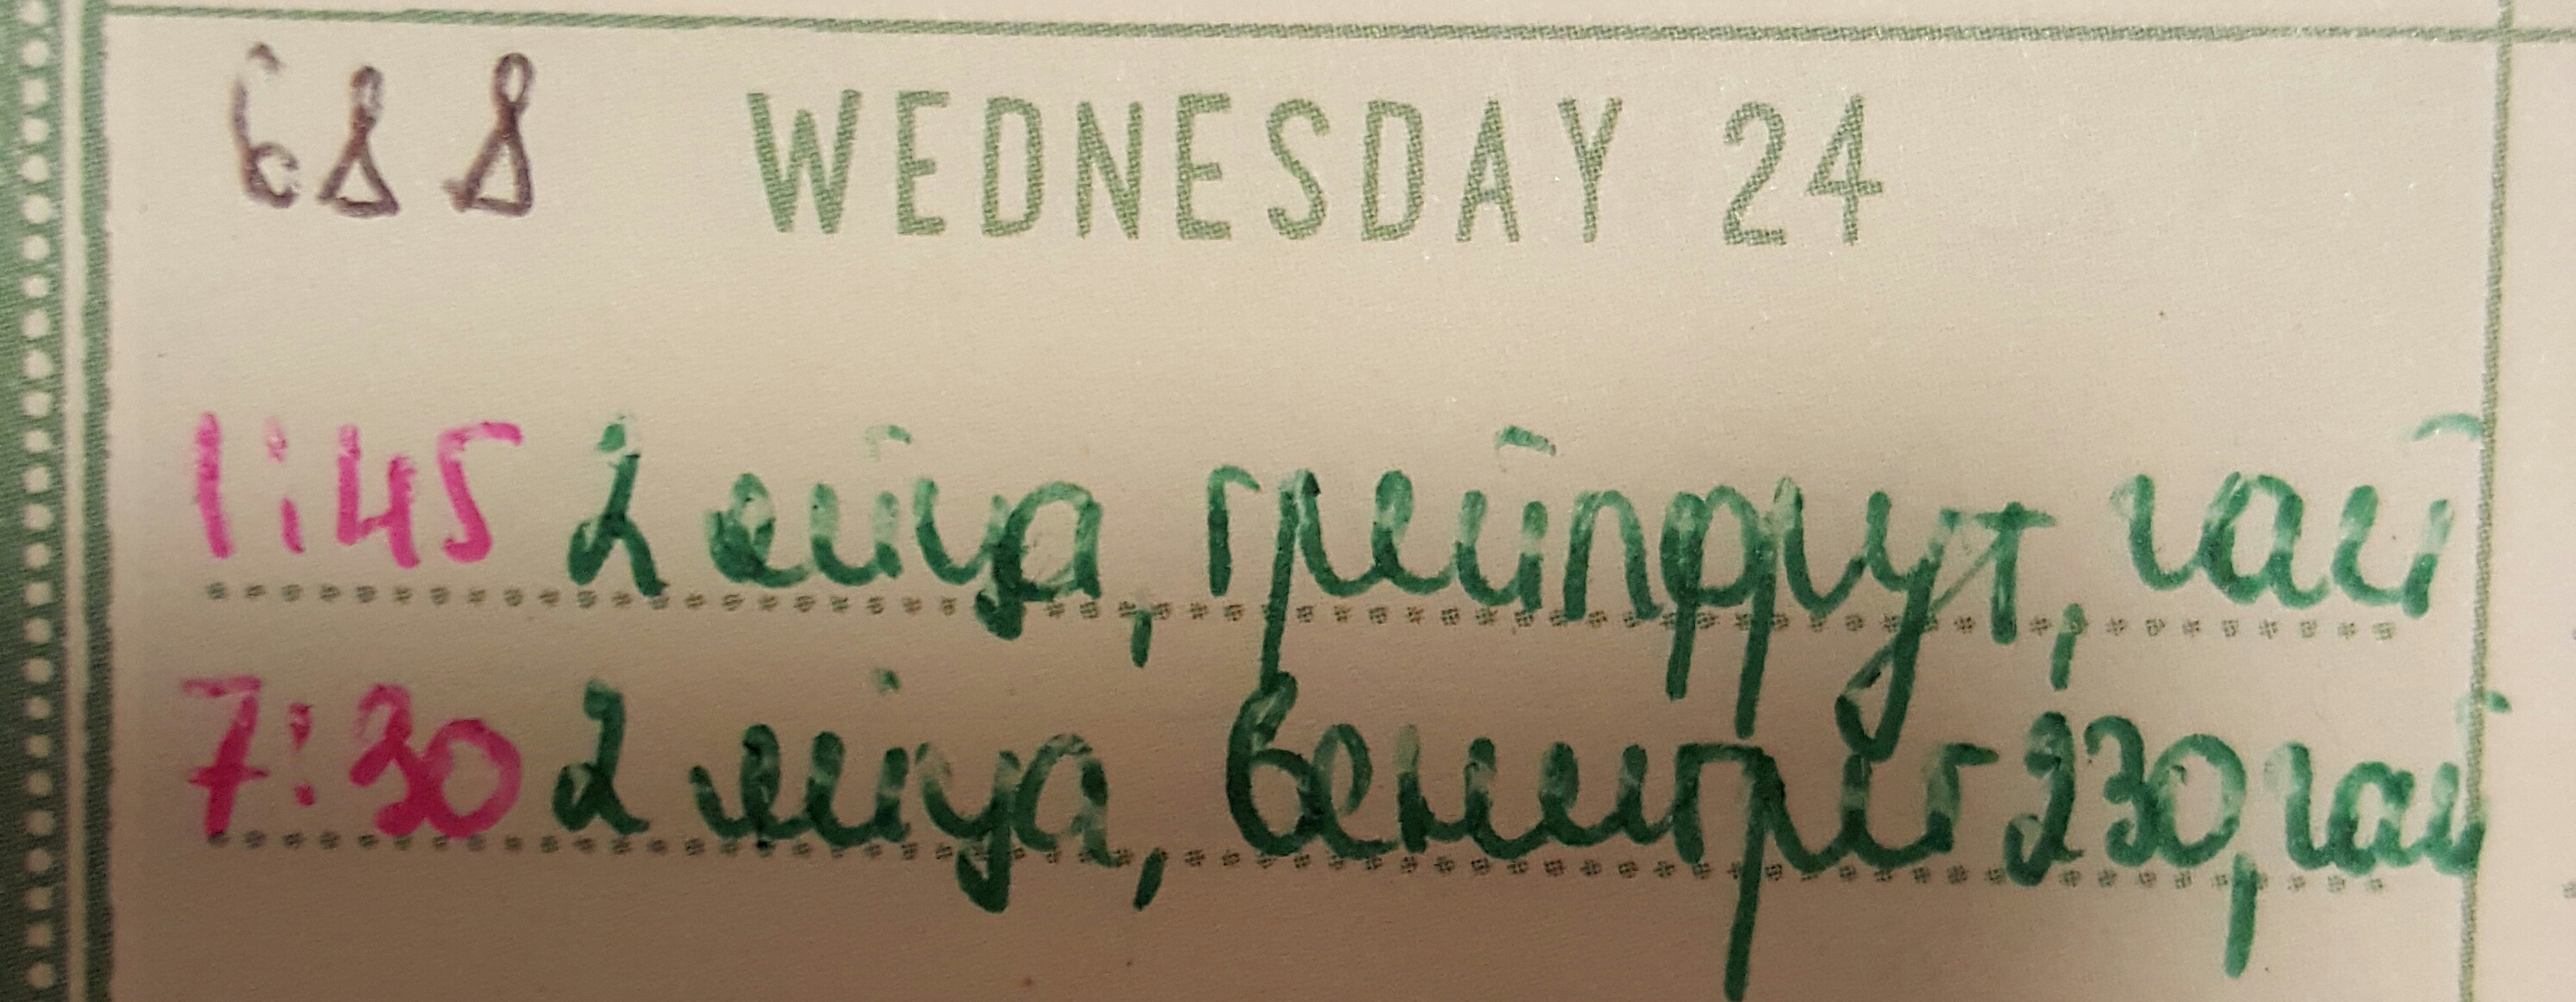 68 8 WEDNESDAY 24
1:45 2 яйца, грейпфрут, чай
7:30 2 яйца, винегрет 230, чай